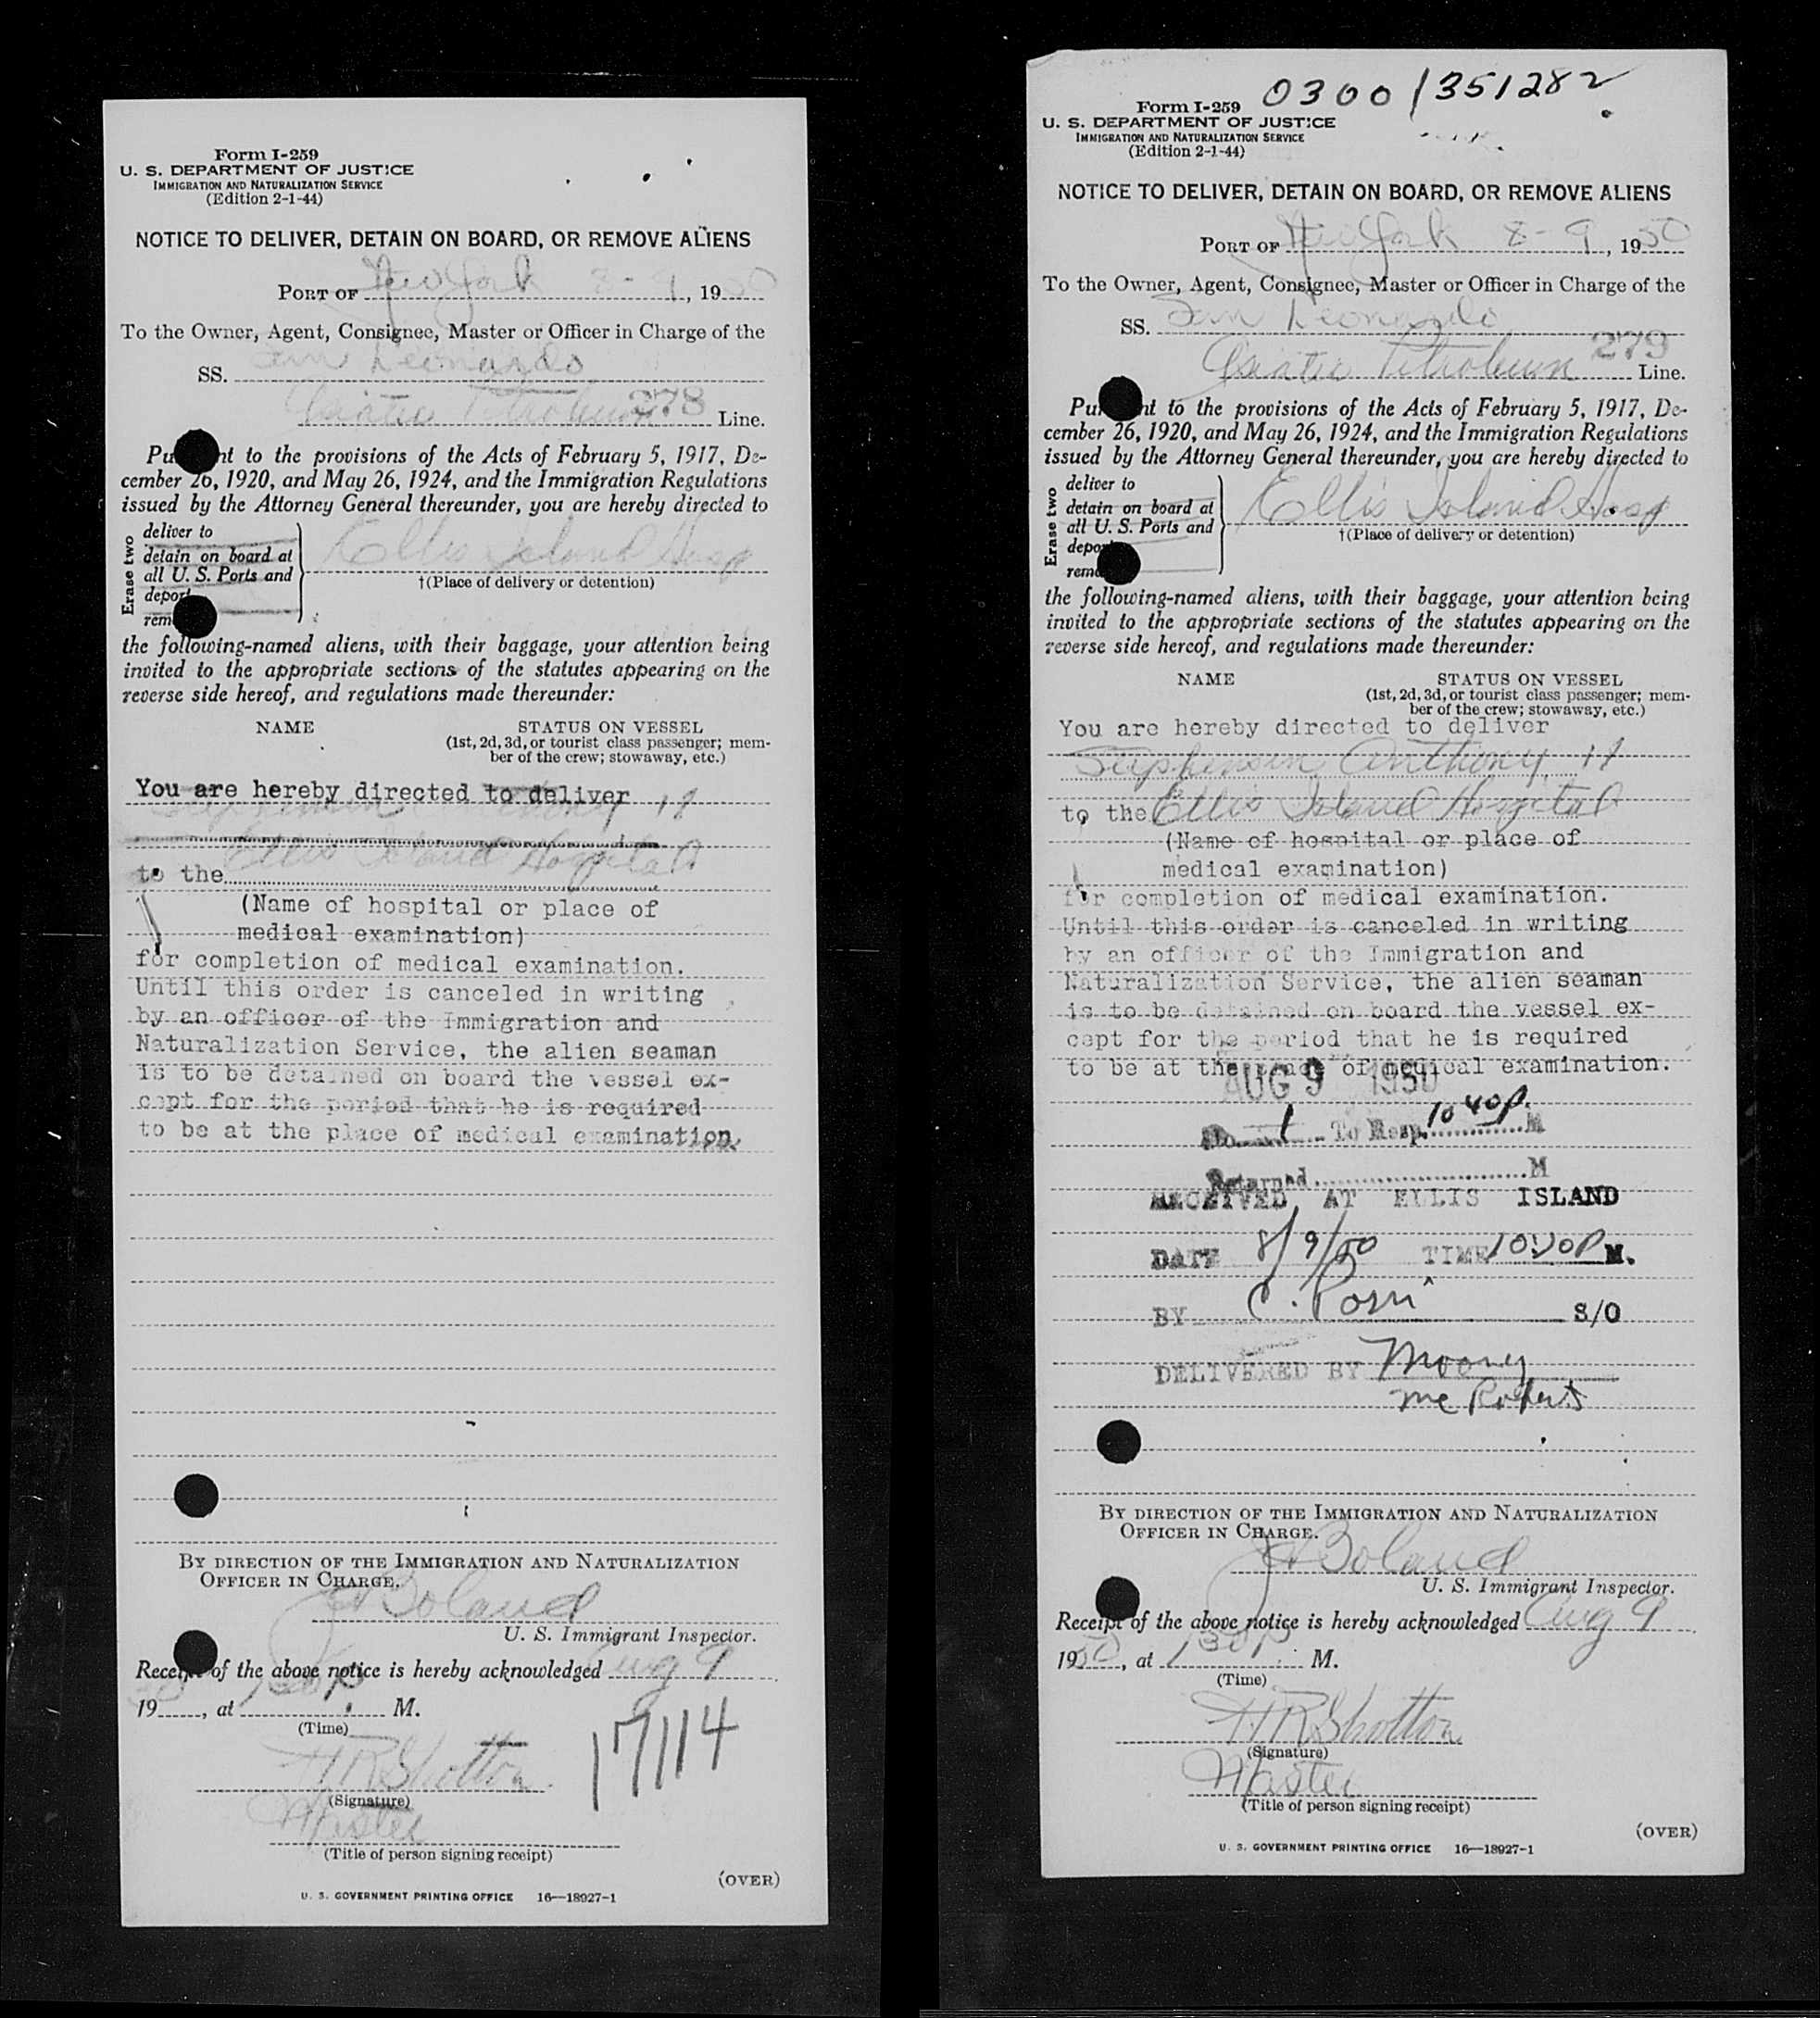 Form I-259
U. S. DEPARTMENT OF JUSTICE
IMMIGRATION AND NATURALIZATION SERVICE
(Edition 2-1-44)
NOTICE TO DELIVER, DETAIN ON BOARD, OR REMOVE ALIENS
PORT OF New York 8-9, 1950
To the Owner, Agent, Consignee, Master or Officer in Charge of the
SS. San Leonardo
Petroleum 278 Line.
nt to the provisions of the Acts of February 5, 1917, De-
cember 26, 1920, and May 26, 1924, and the Immigration Regulations
issued by the Attorney General thereunder, you are hereby directed to
Erase two
deliver to
detain on board at
all U. S. Ports and
deport
rem
Ellis Island Hosp
†(Place of delivery or detention)
the following-named aliens, with their baggage, your attention being
invited to the appropriate sections of the statutes appearing on the
reverse side hereof, and regulations made thereunder:
NAME STATUS ON VESSEL
(1st, 2d, 3d, or tourist class passenger; mem-
ber of the crew; stowaway, etc.)
You are hereby directed to deliver
Anthony
to the Ellis Island Hospital
(Name of hospital or place of
medical examination)
for completion of medical examination.
Until this order is canceled in writing
by an officer of the Immigration and
Naturalization Service, the alien seaman
is to be detained on board the vessel ex-
cept for the period that he is required
to be at the place of medical examination.
BY DIRECTION OF THE IMMIGRATION AND NATURALIZATION
OFFICER IN CHARGE.
Boland
U. S. Immigrant Inspector.
Receipt of the above notice is hereby acknowledged Aug 9
1950, at 130 P. M.
(Time)
17114
H R Shotton
(Signature)
Master
(Title of person signing receipt)
(OVER)
U. S. GOVERNMENT PRINTING OFFICE 16—18927-1
0300/351282
Form I-259
U. S. DEPARTMENT OF JUSTICE
IMMIGRATION AND NATURALIZATION SERVICE
(Edition 2-1-44)
NOTICE TO DELIVER, DETAIN ON BOARD, OR REMOVE ALIENS
PORT OF New York 8-9, 1950
To the Owner, Agent, Consignee, Master or Officer in Charge of the
SS. San Leonardo
279
Petroleum Line.
nt to the provisions of the Acts of February 5, 1917, De-
cember 26, 1920, and May 26, 1924, and the Immigration Regulations
issued by the Attorney General thereunder, you are hereby directed to
Erase two
deliver to
detain on board at
all U. S. Ports and
depo
remo
Ellis Island Hosp
†(Place of delivery or detention)
the following-named aliens, with their baggage, your attention being
invited to the appropriate sections of the statutes appearing on the
reverse side hereof, and regulations made thereunder:
NAME STATUS ON VESSEL
(1st, 2d, 3d, or tourist class passenger; mem-
ber of the crew; stowaway, etc.)
You are hereby directed to deliver
Anthony
to the Ellis Island Hospital
(Name of hospital or place of
medical examination)
for completion of medical examination.
Until this order is canceled in writing
by an officer of the Immigration and
Naturalization Service, the alien seaman
is to be detained on board the vessel ex-
cept for the period that he is required
to be at the place of medical examination.
AUG 9 1950
No. 1 To Hosp. 10 40 P. M
Returned M
RECEIVED AT ELLIS ISLAND
DATE 8/9/50 TIME P M.
BY C. S/O
DELIVERED BY Mooney
McRoberts
BY DIRECTION OF THE IMMIGRATION AND NATURALIZATION
OFFICER IN CHARGE.
Boland
U. S. Immigrant Inspector.
Receipt of the above notice is hereby acknowledged Aug 9
1950, at 130 P. M.
(Time)
H R Shotton
(Signature)
Master
(Title of person signing receipt)
(OVER)
U. S. GOVERNMENT PRINTING OFFICE 16—18927-1